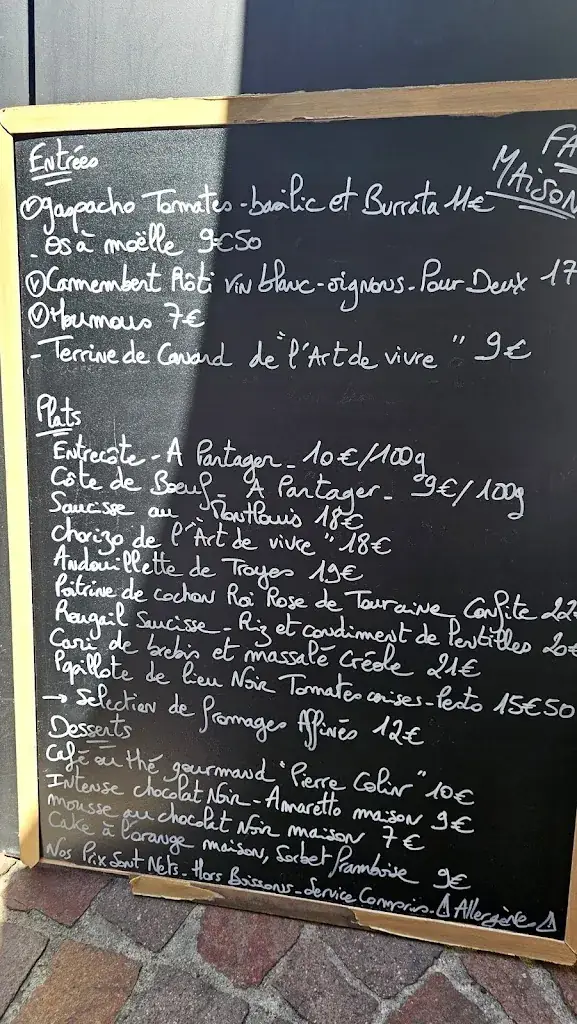 FA
MAISON
Entrées
Ⓥ gaspacho Tomates - basilic et Burrata 11€
- Os à moëlle 9€50
Ⓥ Camembert Rôti vin blanc - oignons - Pour Deux 17
Ⓥ Houmous 7€
- Terrine de Canard de "l'Art de vivre" 9€
Plats
Entrecôte - A Partager - 10€/100g
Côte de Boeuf - A Partager - 9€/100g
Saucisse au Montlouis 18€
Chorizo de l'"Art de vivre" 18€
Andouillette de Troyes 19€
Poitrine de cochon Roi Rose de Touraine Confite 22
Rougail Saucisse - Riz et condiment de lentilles 20€
Cari de brebis et massalé Créole 21€
Papillote de lieu Noir Tomates cerises - Pesto 15€50
→ Selection de fromages Affinés 12€
Desserts
Café ou thé gourmand "Pierre Colin" 10€
Intense chocolat Noir - Amaretto maison 9€
mousse au chocolat Noir maison 7€
Cake à l'orange maison, Sorbet framboise 9€
Nos Prix Sont Nets - Hors Boissons - Service Compris - ⚠ Allergène ⚠